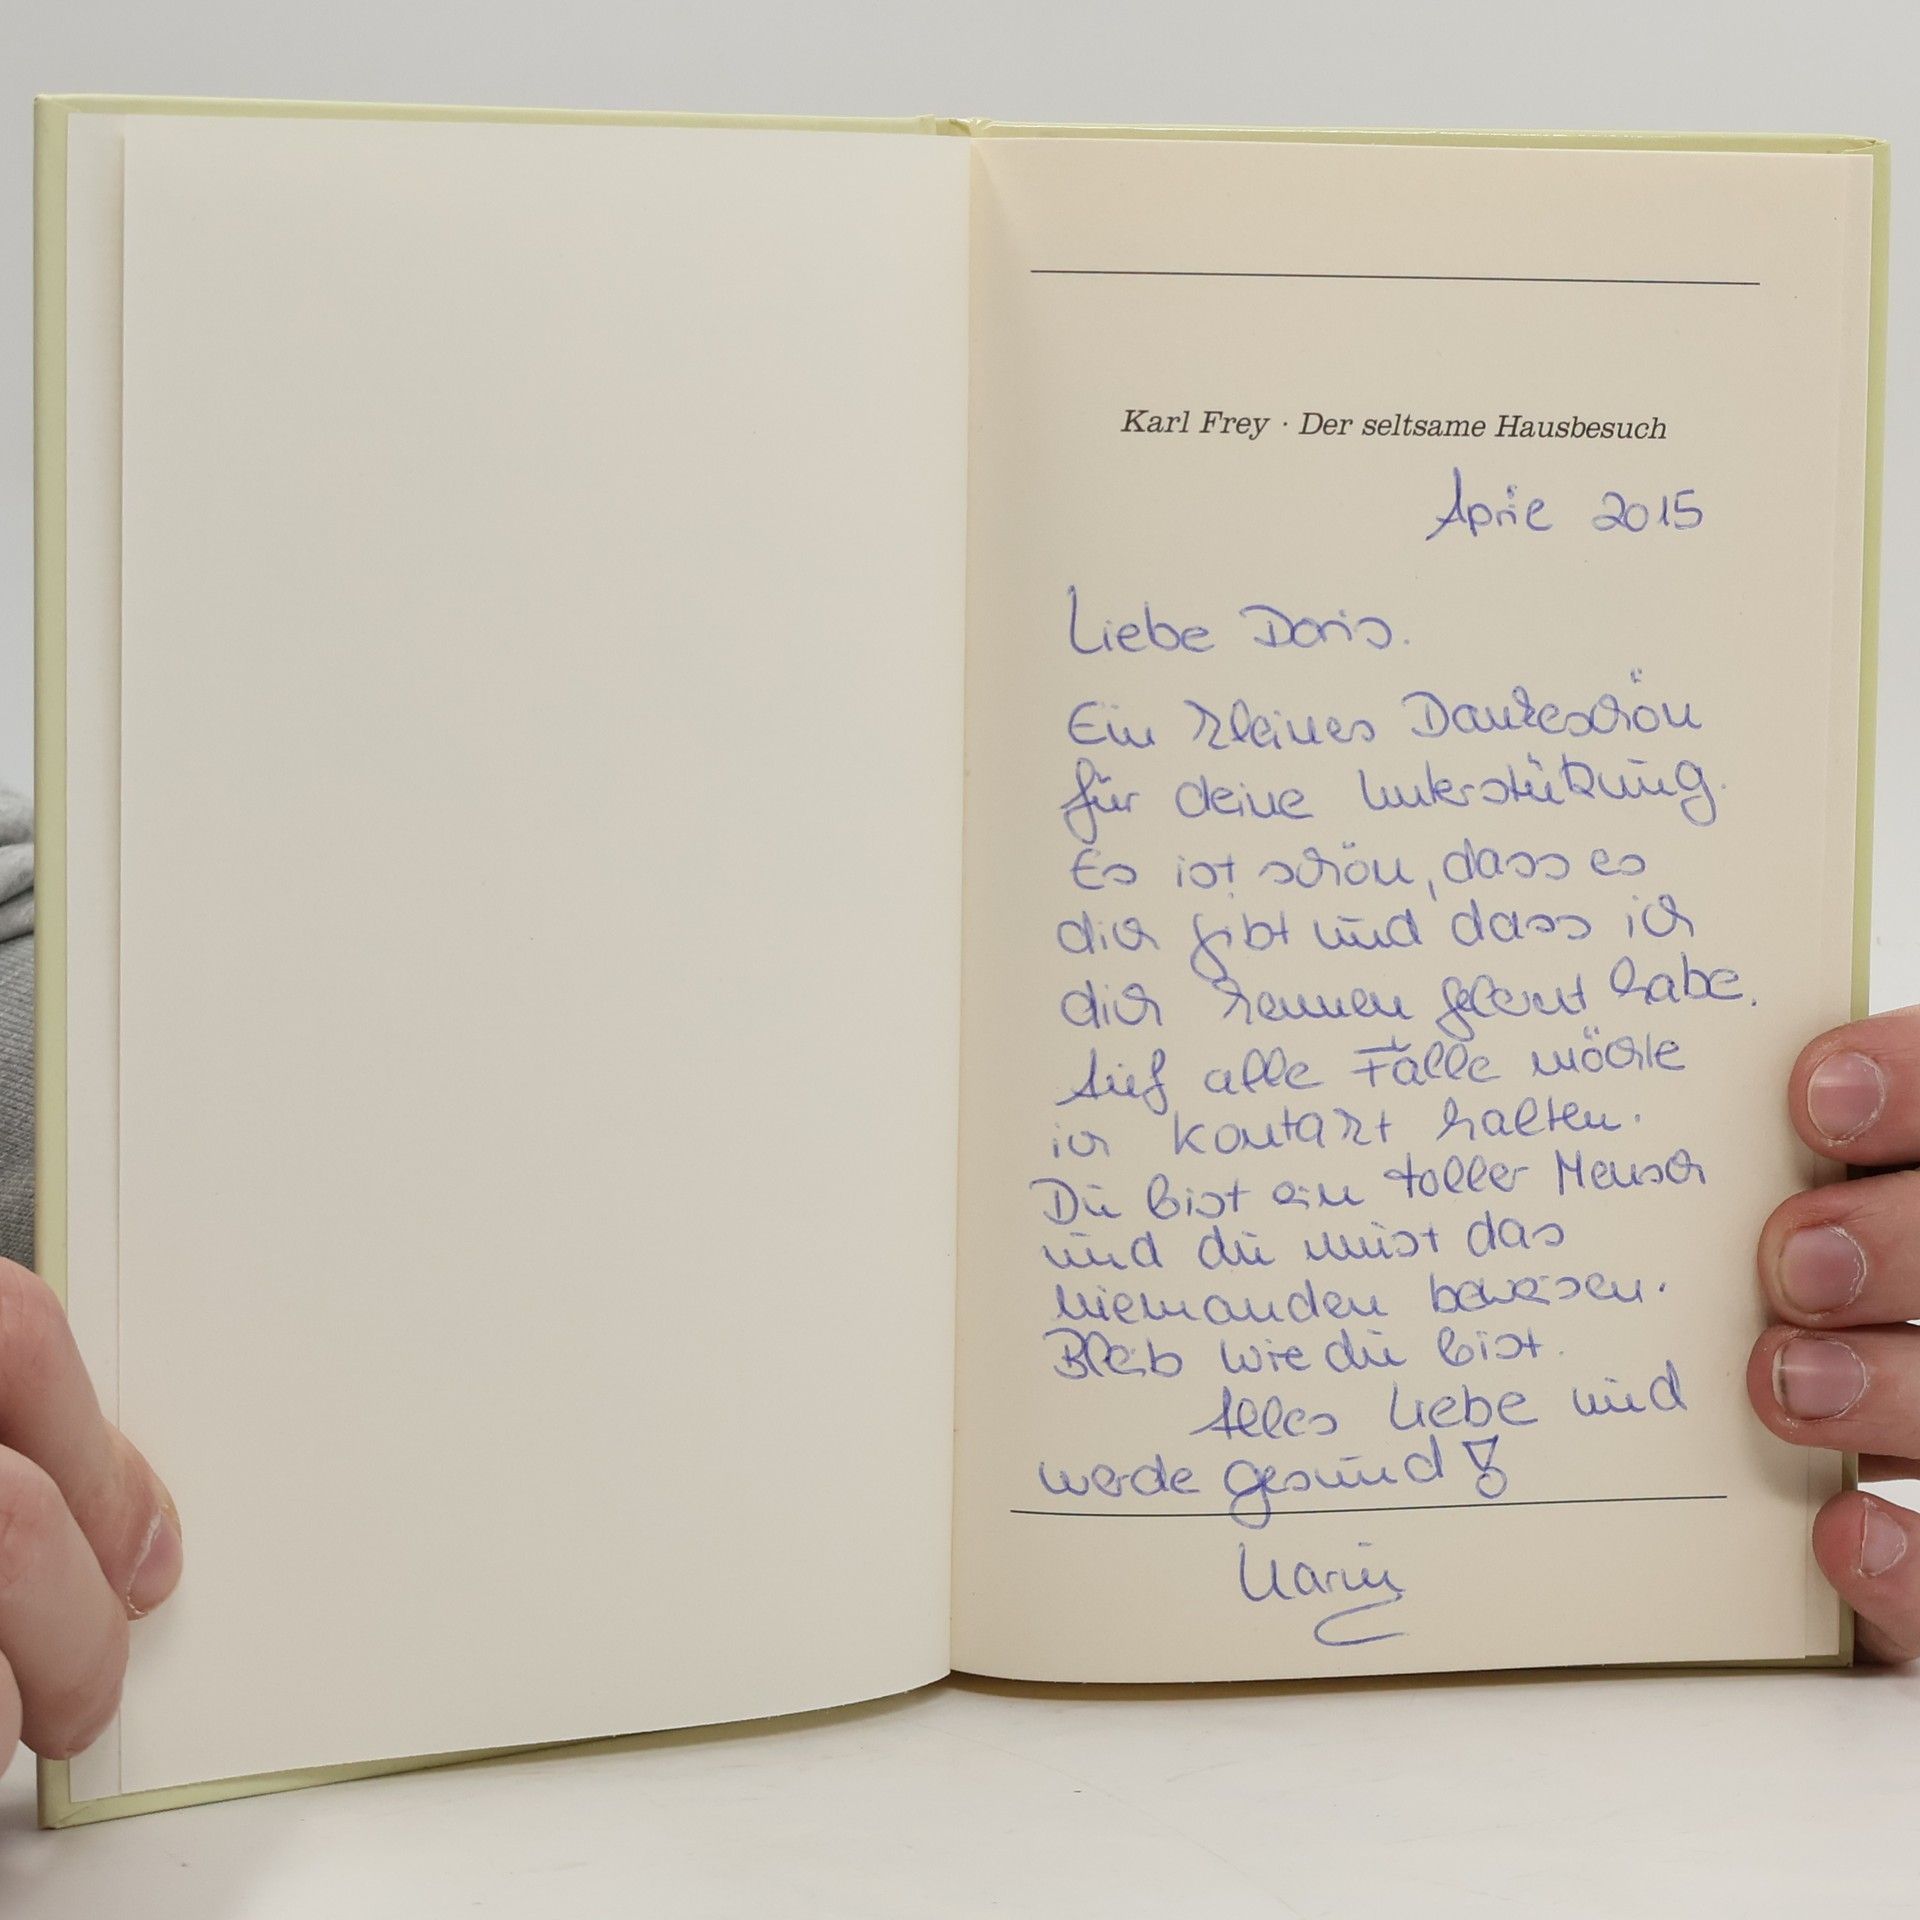 Karl Frey · Der seltsame Hausbesuch
April 2015
Liebe Doris.
Ein kleines Dankeschön
für deine Unterstützung.
Es ist schön, dass es
dich gibt und dass ich
dich kennen gelernt habe.
Auf alle Fälle möchte
ich Kontakt halten.
Du bist ein toller Mensch
und du must das
niemanden beweisen.
Bleib wie du bist.
Alles Liebe und
werde gesund!
Karin